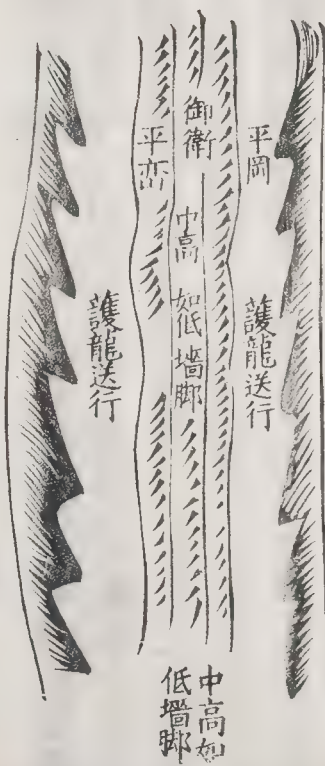 平岡
護龍送行
御衛
中高
如低墻脚
平峦
護龍送行
中高如
低墻脚